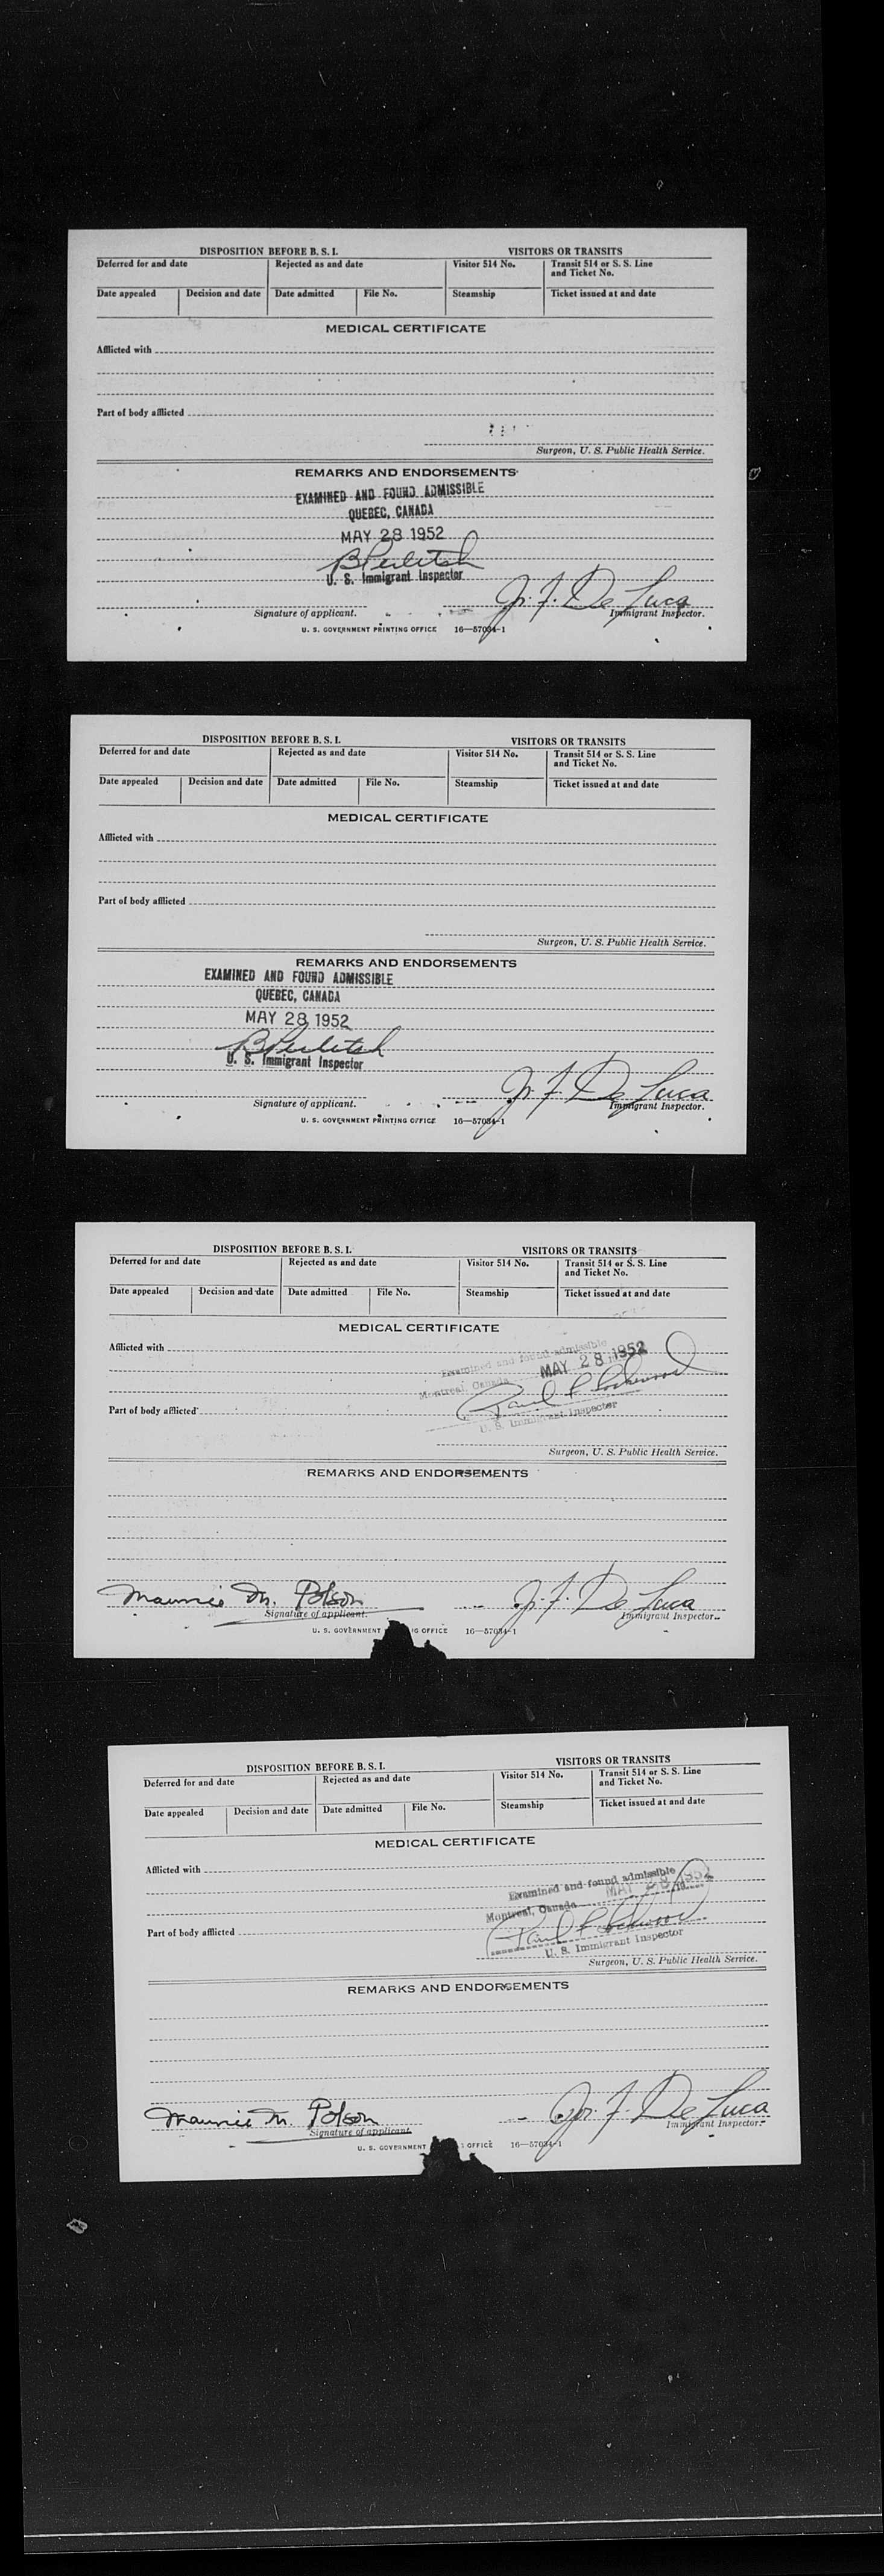 DISPOSITION BEFORE B. S. I. VISITORS OR TRANSITS
Deferred for and date Rejected as and date Visitor 514 No. Transit 514 or S. S. Line and Ticket No.
Date appealed Decision and date Date admitted File No. Steamship Ticket issued at and date
MEDICAL CERTIFICATE
Afflicted with
Part of body afflicted
Surgeon, U. S. Public Health Service.
REMARKS AND ENDORSEMENTS
EXAMINED AND FOUND ADMISSIBLE
QUEBEC, CANADA
MAY 28 1952
U. S. Immigrant Inspector
J. F. De Luca
Signature of applicant. Immigrant Inspector.
U. S. GOVERNMENT PRINTING OFFICE 16—57034-1
DISPOSITION BEFORE B. S. I. VISITORS OR TRANSITS
Deferred for and date Rejected as and date Visitor 514 No. Transit 514 or S. S. Line and Ticket No.
Date appealed Decision and date Date admitted File No. Steamship Ticket issued at and date
MEDICAL CERTIFICATE
Afflicted with
Part of body afflicted
Surgeon, U. S. Public Health Service.
REMARKS AND ENDORSEMENTS
EXAMINED AND FOUND ADMISSIBLE
QUEBEC, CANADA
MAY 28 1952
U. S. Immigrant Inspector
J. F. De Luca
Signature of applicant. Immigrant Inspector.
U. S. GOVERNMENT PRINTING OFFICE 16—57034-1
DISPOSITION BEFORE B. S. I. VISITORS OR TRANSITS
Deferred for and date Rejected as and date Visitor 514 No. Transit 514 or S. S. Line and Ticket No.
Date appealed Decision and date Date admitted File No. Steamship Ticket issued at and date
MEDICAL CERTIFICATE
Afflicted with
Examined and found admissible
Montreal, Canada MAY 28 1952
Paul R Lockwood
U. S. Immigrant Inspector
Part of body afflicted
Surgeon, U. S. Public Health Service.
REMARKS AND ENDORSEMENTS
Maurice M. Polson J. F. De Luca
Signature of applicant. Immigrant Inspector.
U. S. GOVERNMENT OFFICE 16—57034-1
DISPOSITION BEFORE B. S. I. VISITORS OR TRANSITS
Deferred for and date Rejected as and date Visitor 514 No. Transit 514 or S. S. Line and Ticket No.
Date appealed Decision and date Date admitted File No. Steamship Ticket issued at and date
MEDICAL CERTIFICATE
Afflicted with
Examined and found admissible
Montreal, Canada MAY 28 1952
Paul R Lockwood
U. S. Immigrant Inspector
Part of body afflicted
Surgeon, U. S. Public Health Service.
REMARKS AND ENDORSEMENTS
Maurice M. Polson J. F. De Luca
Signature of applicant. Immigrant Inspector.
U. S. GOVERNMENT OFFICE 16—57034-1